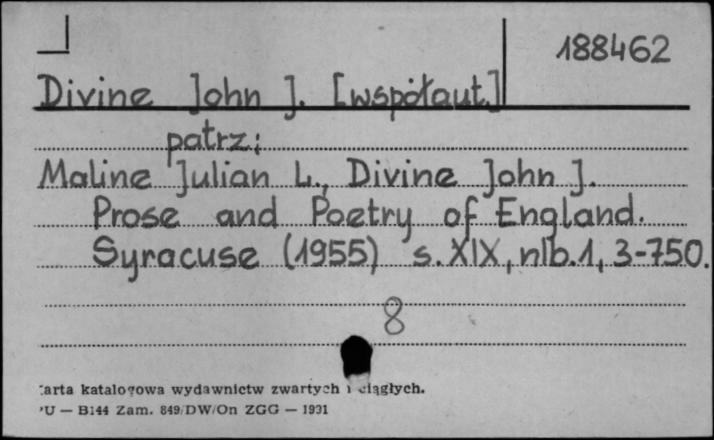 188462
Divine John J. [współaut.]
patrz:
Maline Julian L., Divine John J.
Prose and Poetry of England.
Syracuse (1955) s. XIX, nlb. 1, 3-750.
8
arta katalogowa wydawnictw zwartych i ciągłych.
U — B144 Zam. 849/DW/On ZGG — 1991